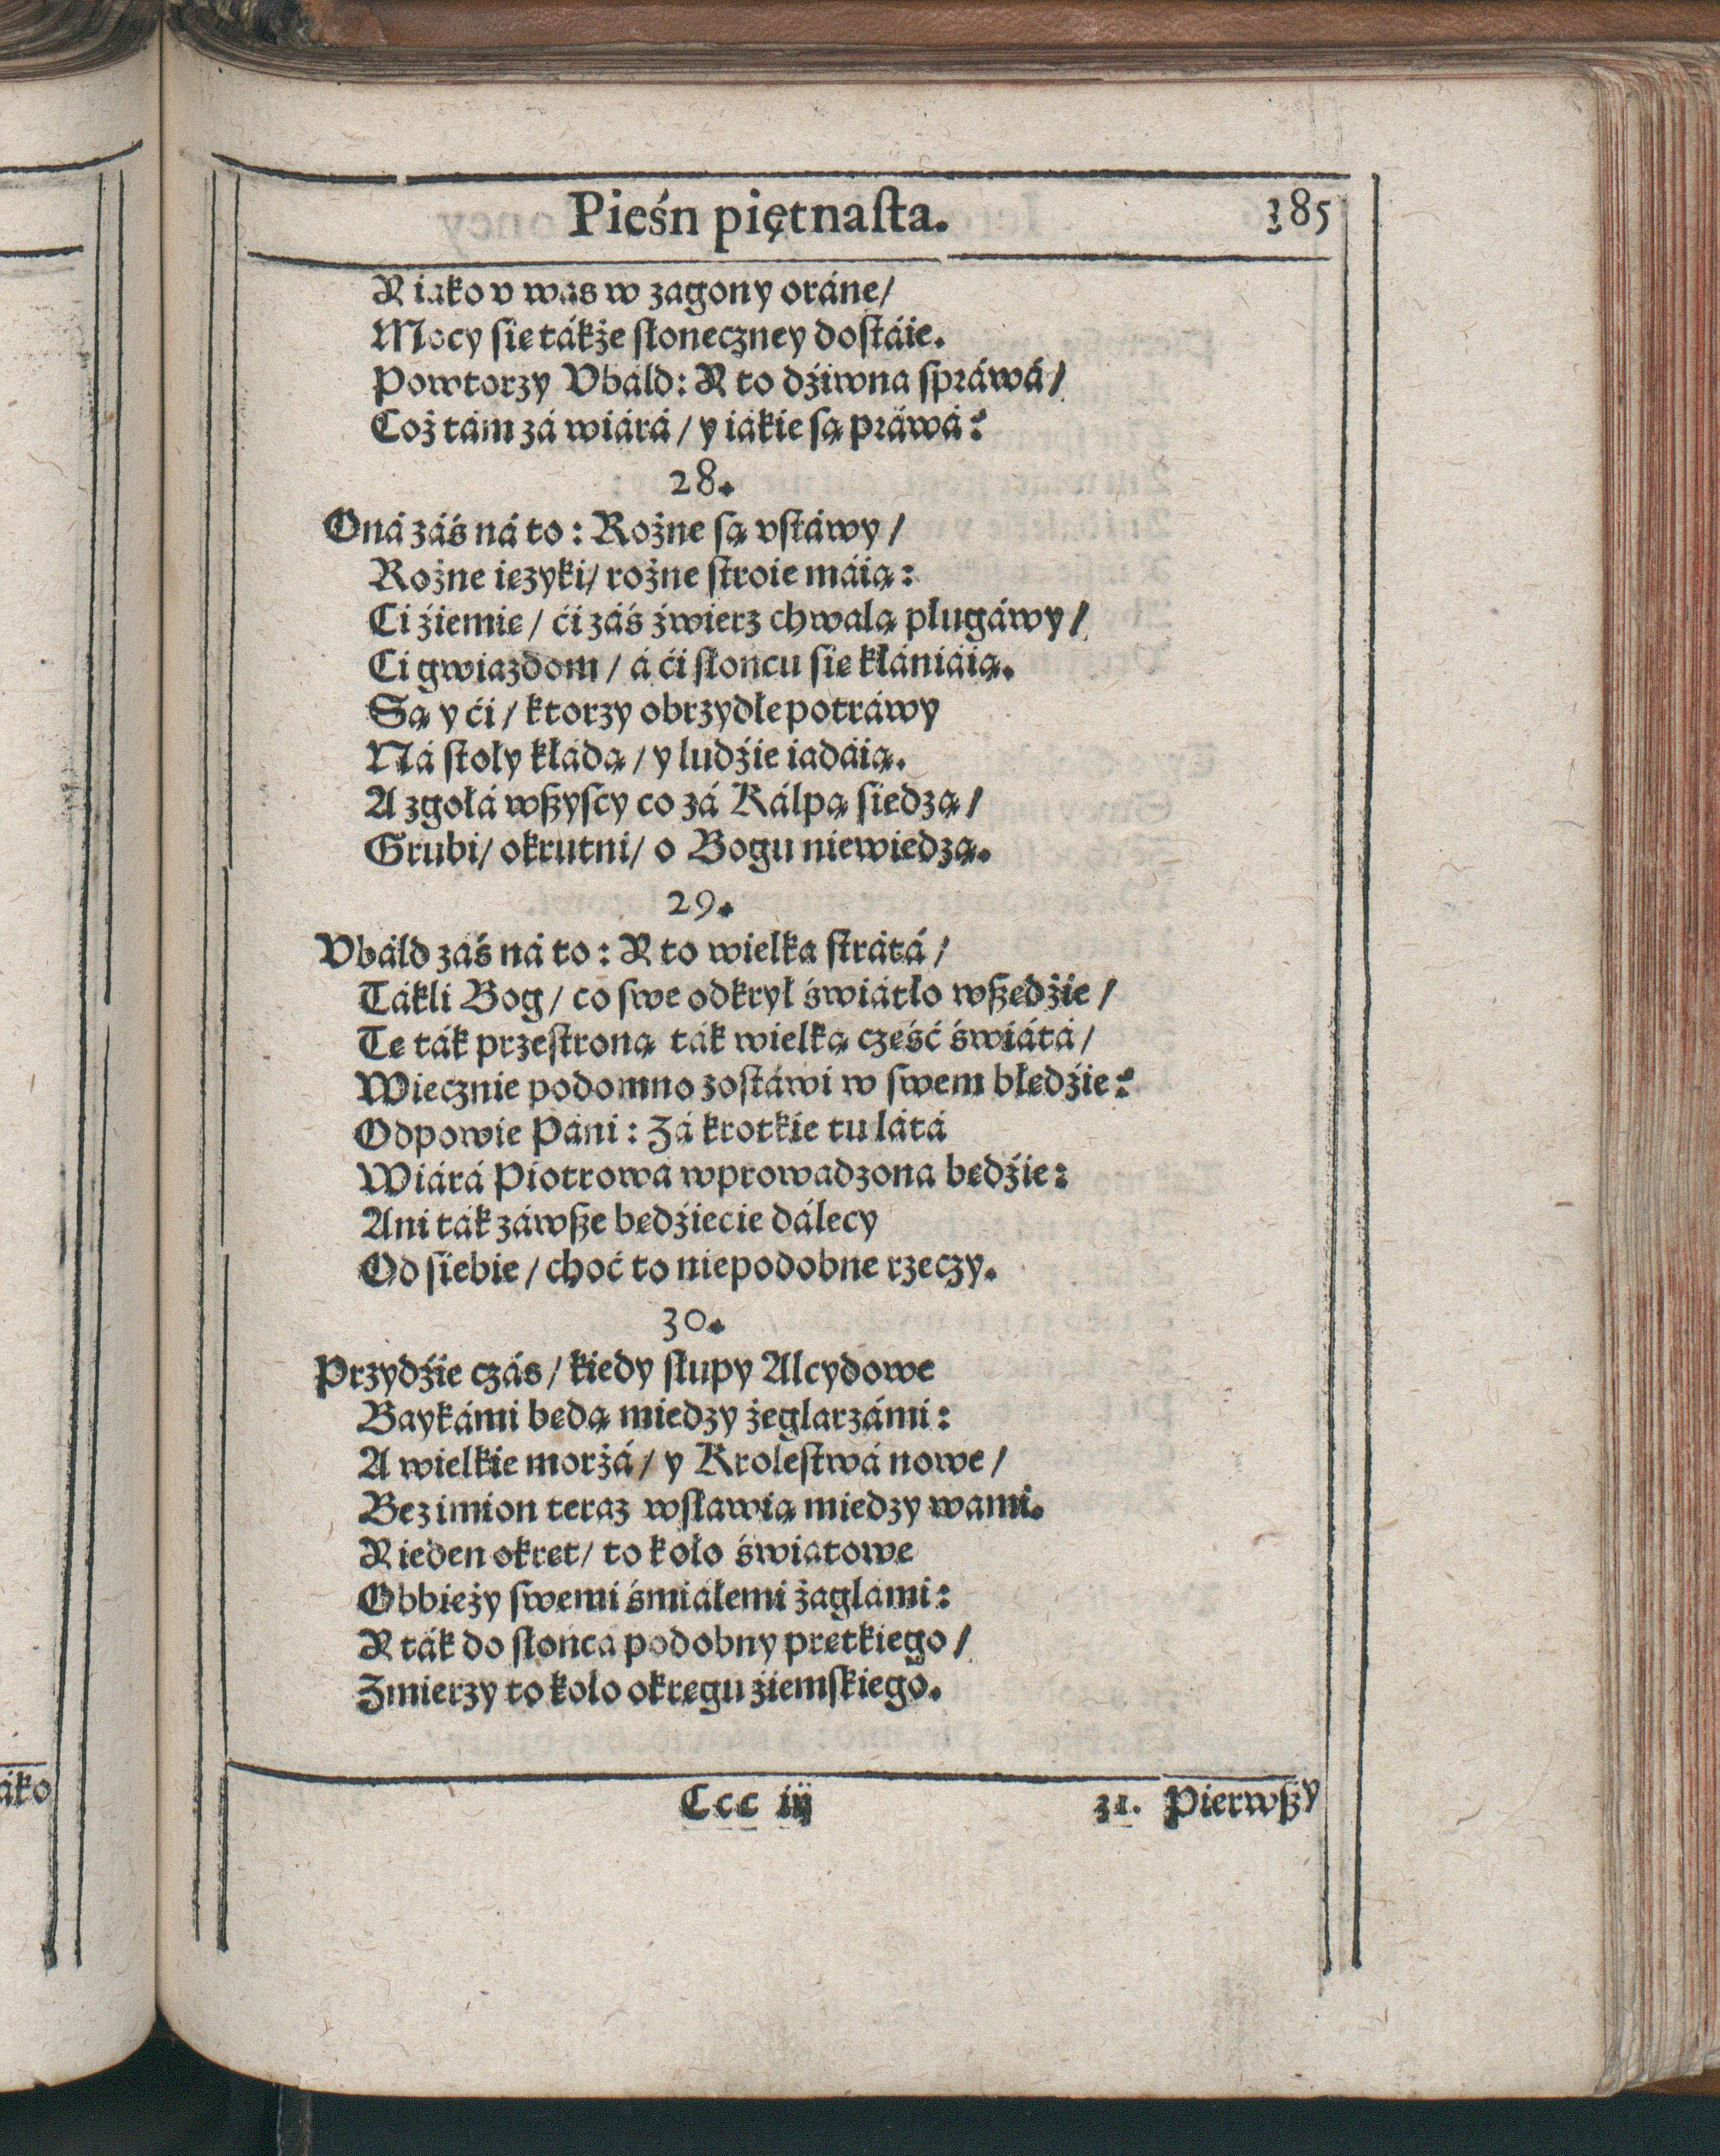 Pieśń piętnaſta.
385
Y iako v was w zagony oráne/
Mocy ſie tákże ſłoneczney doſtáie.
Powtorzy Vbáld: Y to dźiwna ſpráwá/
Coż tám zá wiárá/ y iákie ſą práwá?
28.
Oná záś ná to: Rożne ſą vſtáwy/
Rożne ięzyki/ rożne ſtroie máią:
Ci źiemię/ ći záś źwierz chwalą plugáwy/
Ci gwiazdom/ á ći ſłoncu ſię kłániáią.
Są y ći/ ktorzy obrzydłe potráwy
Ná ſtoły kłádą/ y ludźie iadáią.
A zgołá wßyſcy co zá Kálpą siedzą/
Grubi/ okrutni/ o Bogu niewiedzą.
29.
Vbáld záś ná to: Y to wielka ſtrátá/
Tákli Bog/ co ſwe odkrył świátło wßędźie/
Tę ták przeſtroną ták wielką część świátá/
Wiecznie podomno zoſtáwi w ſwem błędźie?
Odpowie Páni: Zá krotkie tu látá
Wiárá Piotrowá wprowadzona będźie:
Ani ták záwße będźiecie dálecy
Od ſiebie/ choć to niepodobne rzeczy.
30.
Przydźie czás/ kiedy ſłupy Alcydowe
Baykámi będą miedzy żeglarzámi:
A wielkie morzá/ y Kroleſtwá nowe/
Bez imion teraz wſławią miedzy wami.
Y ieden okręt/ to koło światowe
Obbieży ſwemi śmiáłemi żaglámi:
Y ták do ſłońcá podobny prętkiego/
Zmierzy to koło okręgu źiemſkiego.
Ccc iij
31. Pierwßy
áko